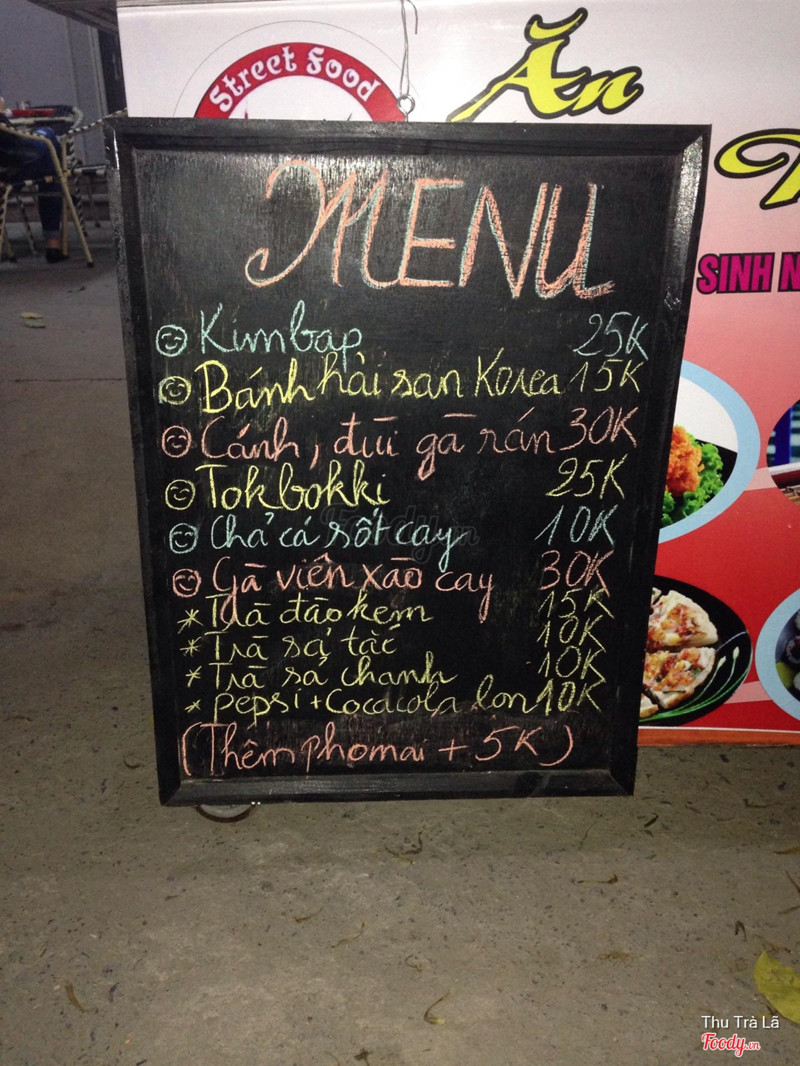 Street Food
Ăn
SINH N
MENU
Kimbap 25K
Bánh hải san Korea 15K
Cánh, đùi gà rán 30K
Tokbokki 25K
Chả cá sốt cay 10K
Gà viên xào cay 30K
* Trà đào kem 15K
* Trà sả tắc 10K
* Trà sả chanh 10K
* pepsi + Cocacola lon 10K
(Thêm phomai + 5K)
Foody.vn
Thu Trà Lã
Foody.vn